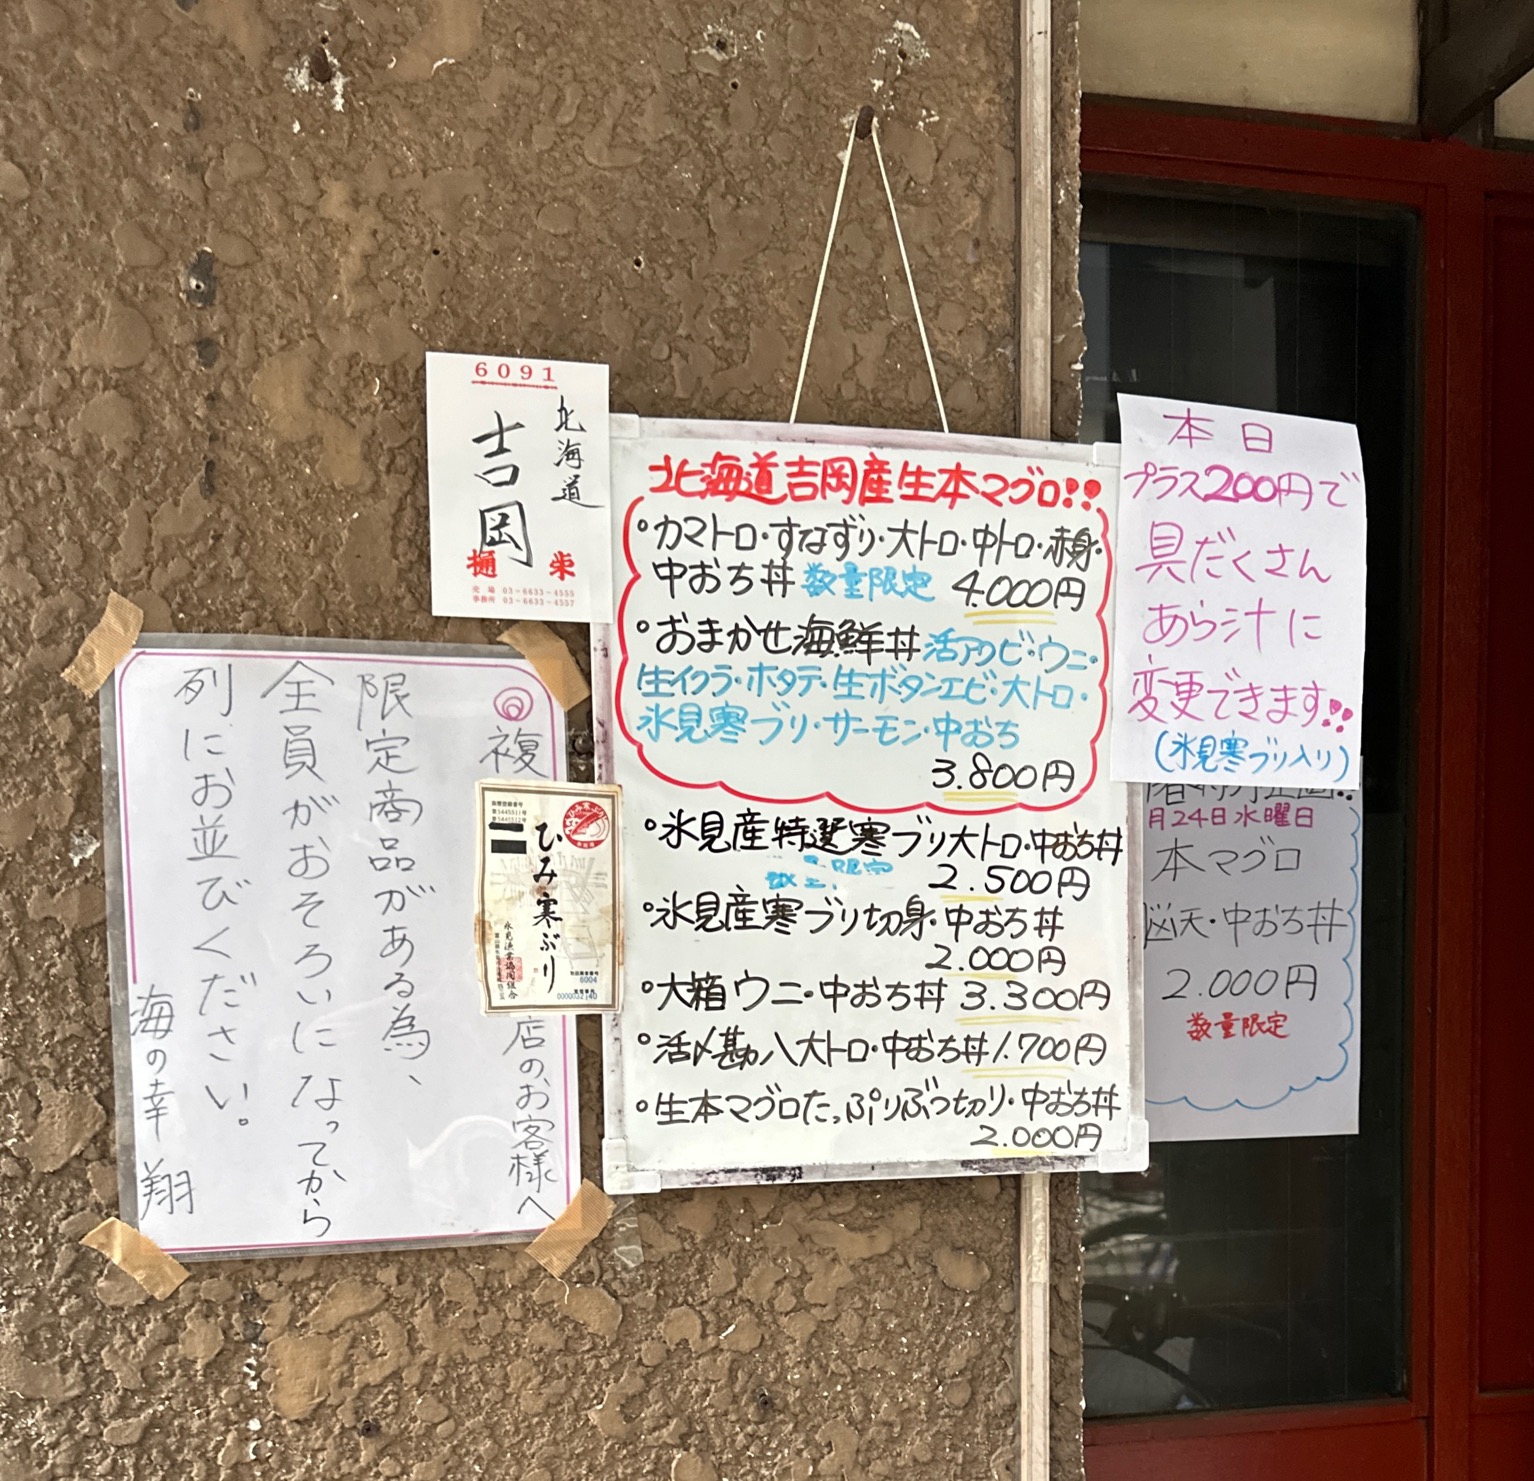 6091
北海道
吉岡
樋栄
売場 03-6633-4555
事務所 03-6633-4557
複
店のお客様へ
限定商品がある為、
全員がおそろいになってから
列にお並びください。
海の幸 翔
ひみ寒ぶり
氷見漁業協同組合
6004
0000032140
北海道吉岡産生本マグロ!!
・カマトロ・すなずり・大トロ・中トロ・赤身・
中おち丼 数量限定 4.000円
・おまかせ海鮮丼 活アワビ・ウニ・
生イクラ・ホタテ・生ボタンエビ・大トロ・
氷見寒ブリ・サーモン・中おち
3.800円
・氷見産特選寒ブリ大トロ・中おち丼
限定 2.500円
・氷見産寒ブリ切身・中おち丼
2.000円
・大箱ウニ・中おち丼 3.300円
・活〆勘八大トロ・中おち丼 1.700円
・生本マグロたっぷりぶつ切り・中おち丼
2.000円
本日
プラス200円で
具だくさん
あら汁に
変更できます!!
(氷見寒ブリ入り)
月24日水曜日
本マグロ
脳天・中おち丼
2.000円
数量限定